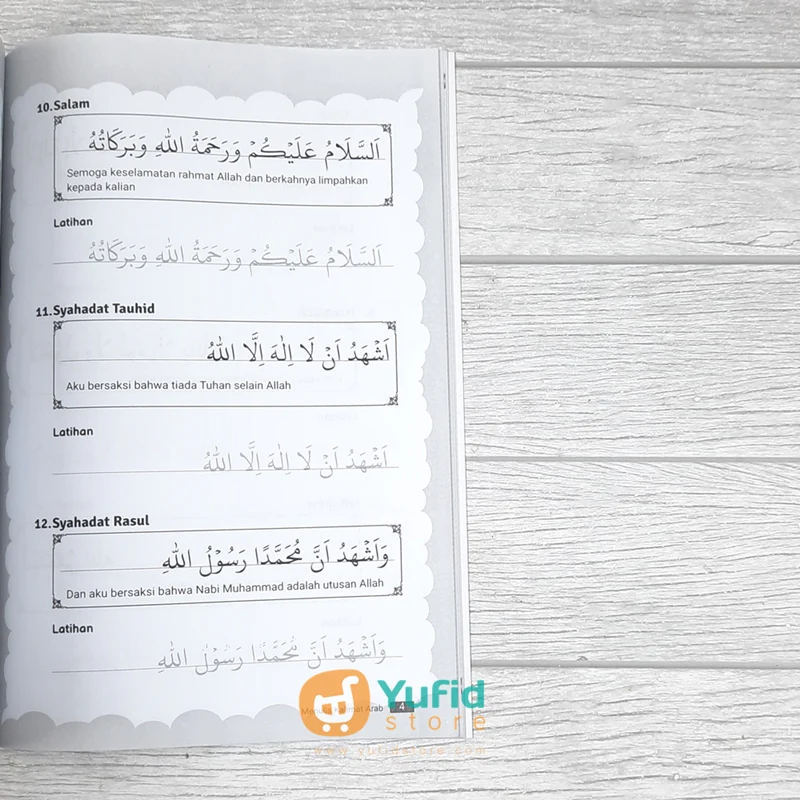 10. Salam
اَلسَّلَامُ عَلَيْكُمْ وَرَحْمَةُ اللّٰهِ وَبَرَكَاتُهُ
Semoga keselamatan rahmat Allah dan berkahnya limpahkan
kepada kalian
Latihan
اَلسَّلَامُ عَلَيْكُمْ وَرَحْمَةُ اللّٰهِ وَبَرَكَاتُهُ
11. Syahadat Tauhid
اَشْهَدُ اَنْ لَا اِلٰهَ اِلَّا اللّٰهُ
Aku bersaksi bahwa tiada Tuhan selain Allah
Latihan
اَشْهَدُ اَنْ لَا اِلٰهَ اِلَّا اللّٰهُ
12. Syahadat Rasul
وَاَشْهَدُ اَنَّ مُحَمَّدًا رَسُوْلُ اللّٰهِ
Dan aku bersaksi bahwa Nabi Muhammad adalah utusan Allah
Latihan
وَاَشْهَدُ اَنَّ مُحَمَّدًا رَسُوْلُ اللّٰهِ
Arab 4
Yufid
store
www.yufidstore.com